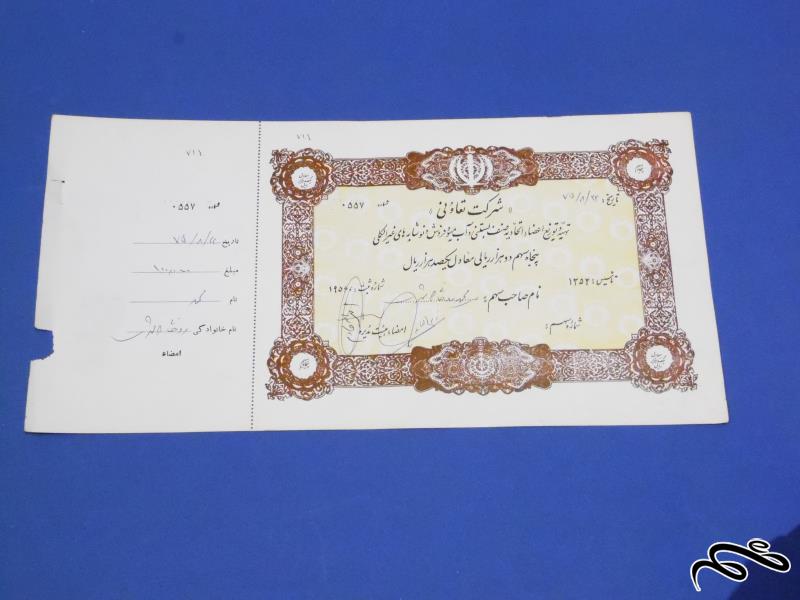 ۷۱۶
تاریخ: ۷۵/۸/۲۲
شماره ۰۵۵۷
«شرکت تعاونی»
تهیه و توزیع اعضاء اتحادیه صنف بستنی و آب میوه فروش و نوشابه های غیرالکلی
پنجاه سهم دو هزار ریالی معادل یکصد هزار ریال
تاسیس: ۱۳۵۲
شماره ثبت: ۱۹۵۶۰
نام صاحب سهم:
شماره سهم:
امضاء هیئت مدیره
۷۱۶
شماره ۰۵۵۷
تاریخ ۷۵/۸/۲۲
مبلغ ۱۰۰/۰۰۰
نام محمد
نام خانوادگی
امضاء